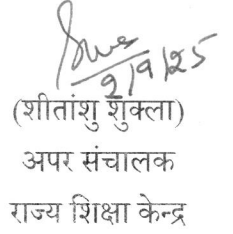 2/9/25
(शीतांशु शुक्ला)
अपर संचालक
राज्य शिक्षा केन्द्र